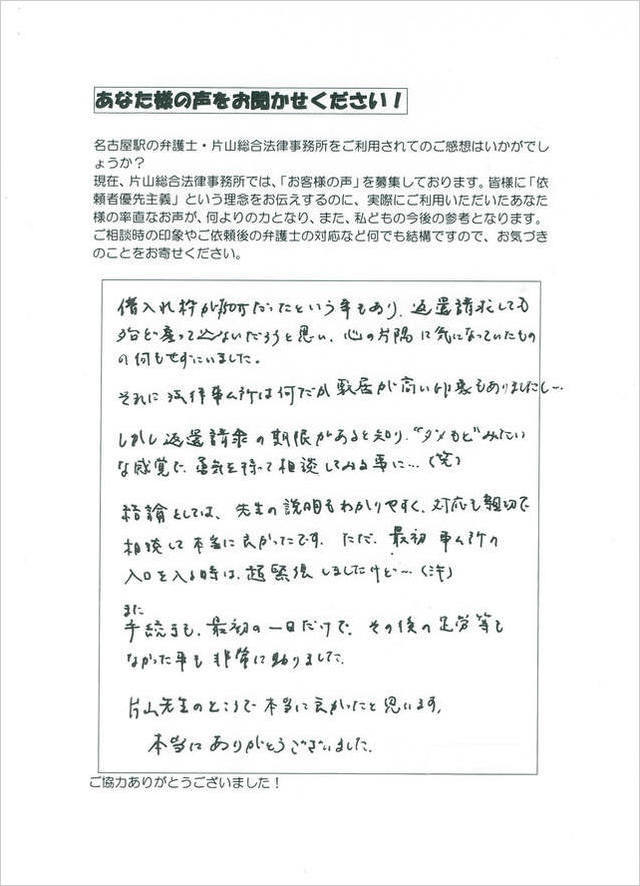 あなた様の声をお聞かせください！
名古屋駅の弁護士・片山総合法律事務所をご利用されてのご感想はいかがでし
ょうか？
現在、片山総合法律事務所では、「お客様の声」を募集しております。皆様に「依
頼者優先主義」という理念をお伝えするのに、実際にご利用いただいたあなた
様の率直なお声が、何よりの力となり、また、私どもの今後の参考となります。
ご相談時の印象やご依頼後の弁護士の対応など何でも結構ですので、お気づき
のことをお寄せください。
借入れ枠が50万だったという事もあり、返還請求しても
戻って来ないだろうと思い、心の片隅に気になっていたもの
の何もせずにいました。
それに法律事ム所は何だか敷居が高い印象もありましたし…
しかし返還請求の期限があると知り、“ダメもと”みたい
な感覚で、勇気を持って相談してみる事に…（笑）
結論としては、先生の説明もわかりやすく、対応も親切で
相談して本当に良かったです。ただ、最初事ム所の
入口を入る時は、超緊張しましたけど…（汗）
また
手続きも、最初の一日だけで、その後の足労等も
なかった事も非常に助りました。
片山先生のところで本当に良かったと思います。
本当にありがとうございました。
ご協力ありがとうございました！